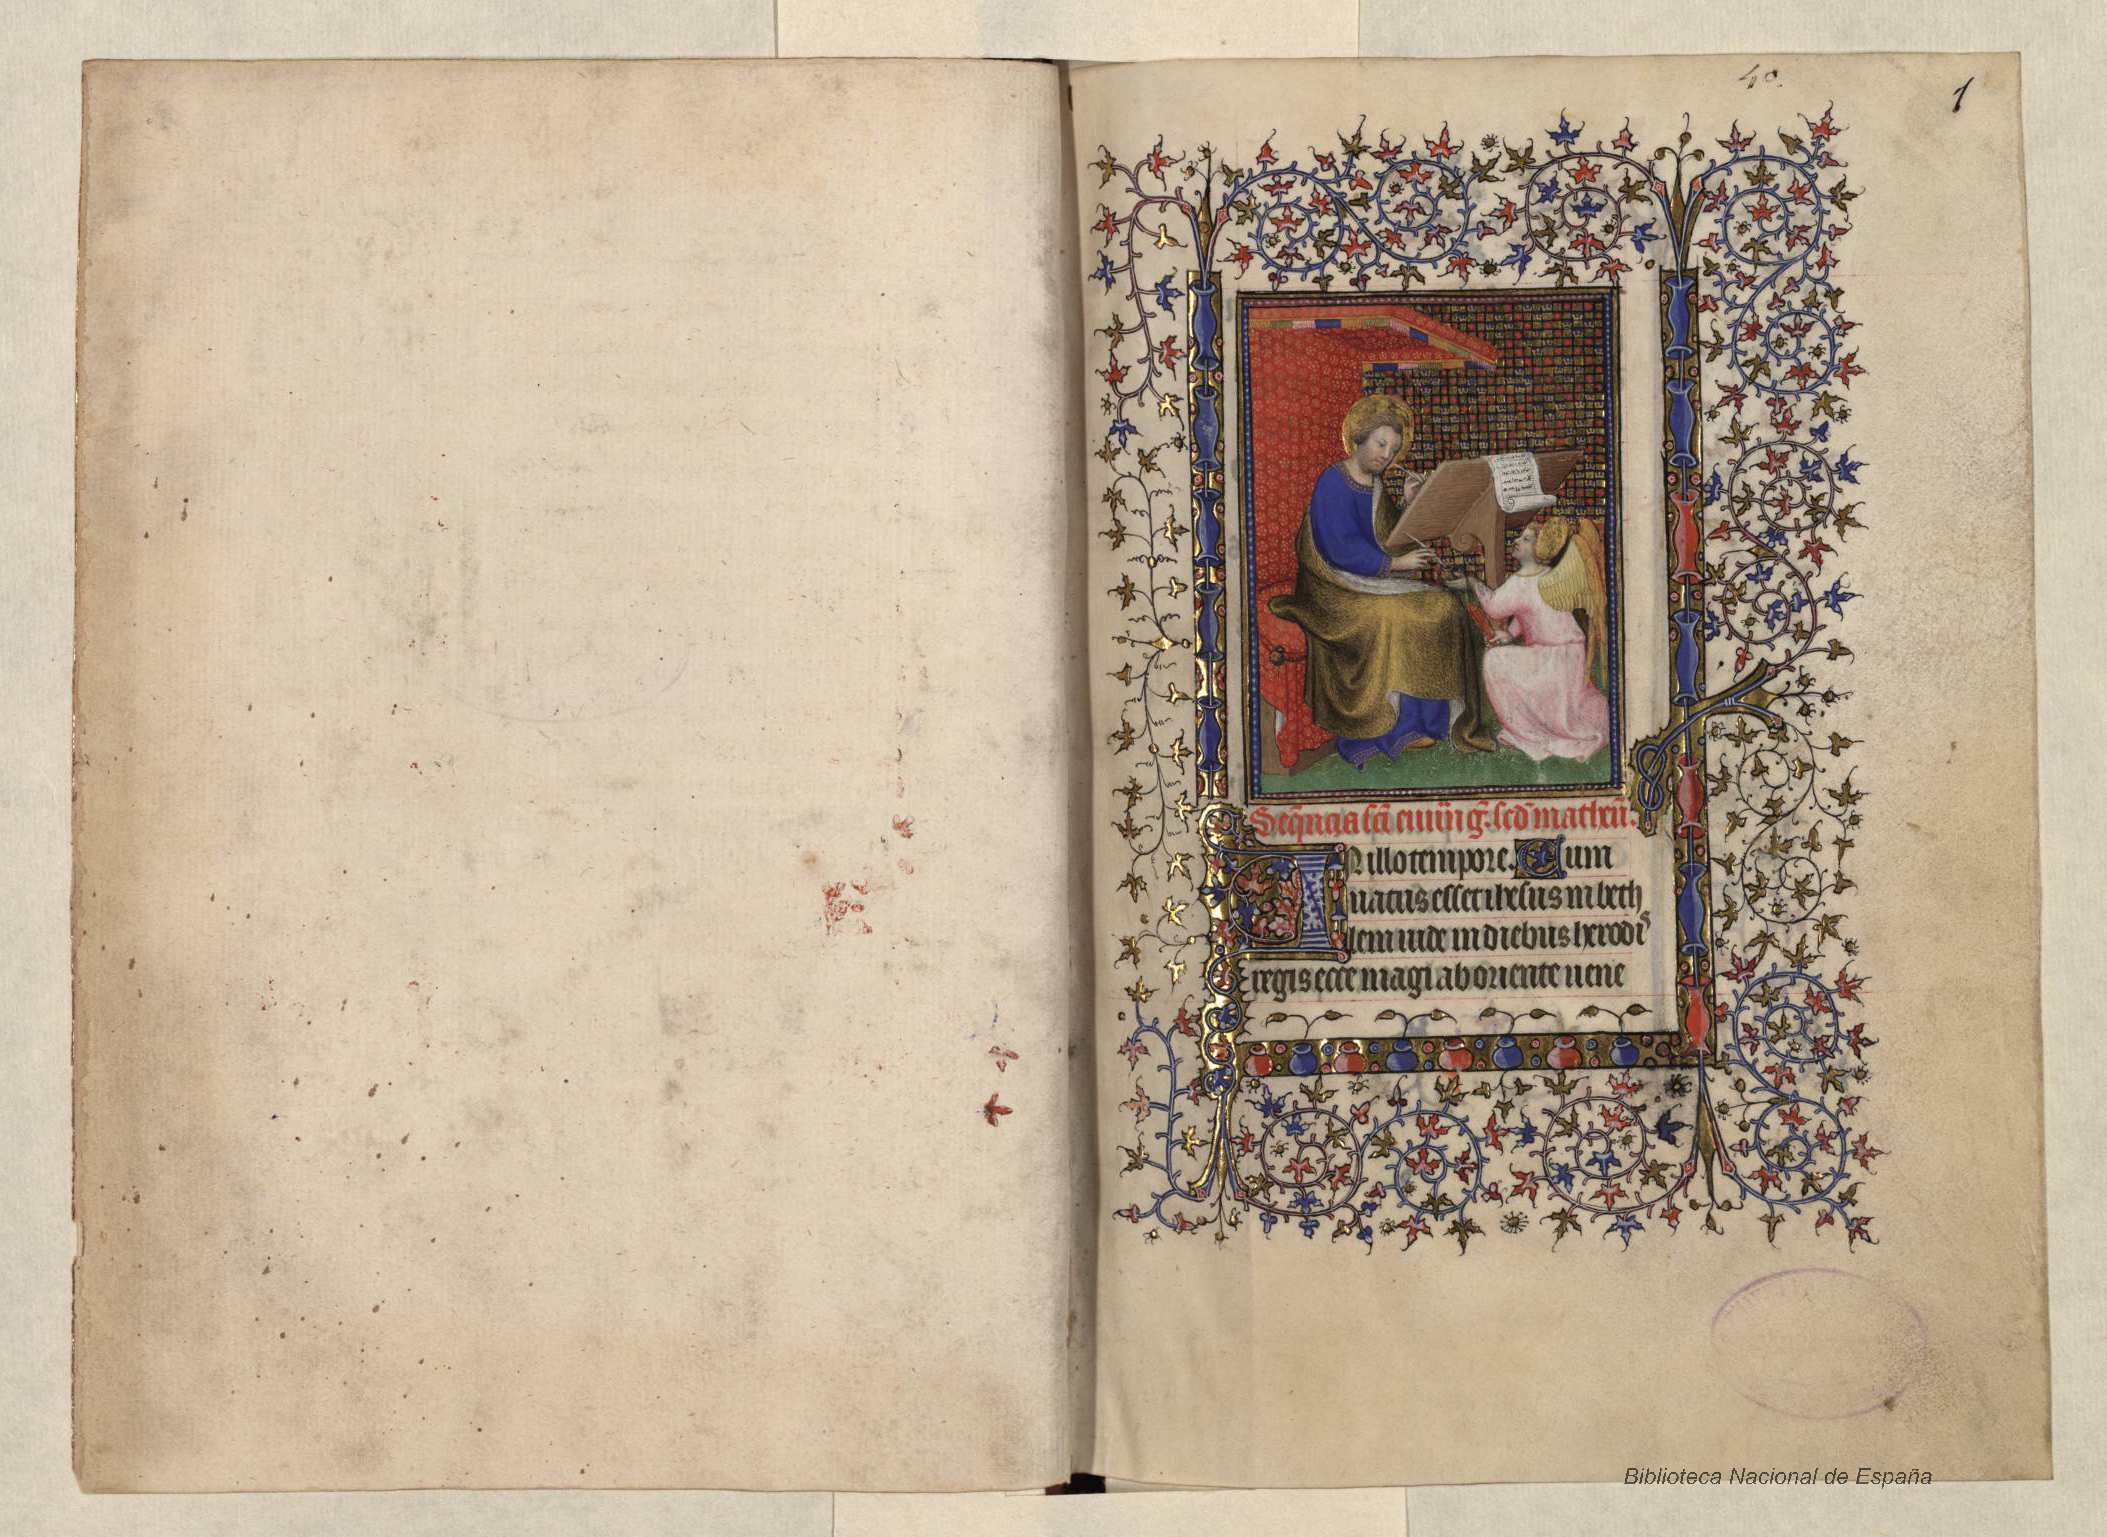 40.
1
Seq̃ncia sc̃i euuñg̃. scd̃m matheũ.
IN illo tempore. Cum
natus esset ihesus in beth
leem iude in diebus herodis
regis ecce magi ab oriente uene
Biblioteca Nacional de España